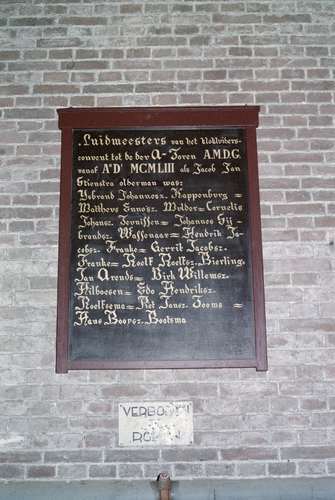 Luidmeesters van het Kloklùiders-
convent tot de der A-Toren A.M.D.G.
vanaf A°D¹ MCMLIII als Jacob Jan
Glenstra olderman was:
Ysbrand Johannesz. Kappenburg =
Mattheus Ennosz. Mulder = Cornelis
Johansz. Tevnissen = Johannes Gij-
brandsz. Wassenaar = Hendrik Ja-
cobsz. Franke = Gerrit Jacobsz.
Franke = Roelf Roelfsz. Bierling.
Jan Arends = Dirk Willemsz.
Hilboesen = Edo Hendriksz.
Roelfsema = Piet Jansz. Tooms =
Hans Boopsz. Bootsma
VERBODEN
ROKEN